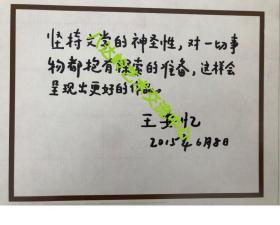 坚持文学的神圣性，对一切事
物都抱有探索的准备，这样会
呈现出更好的作品。
王安忆
2015年6月8日